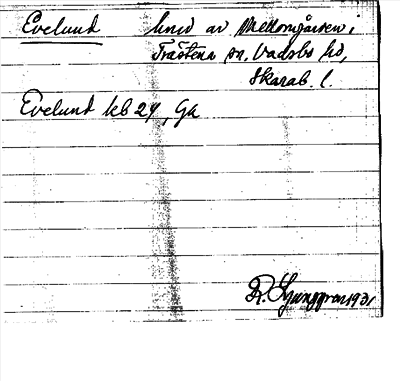 Evelund hmd av Mellomgården i
Trästena sn. Vadsbo hd,
Skarab. l.
Evelund kb 24, Gk
R. Ljunggren 1931